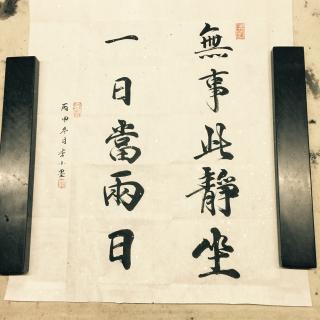 無事此靜坐
一日當兩日
丙申冬月李小墨